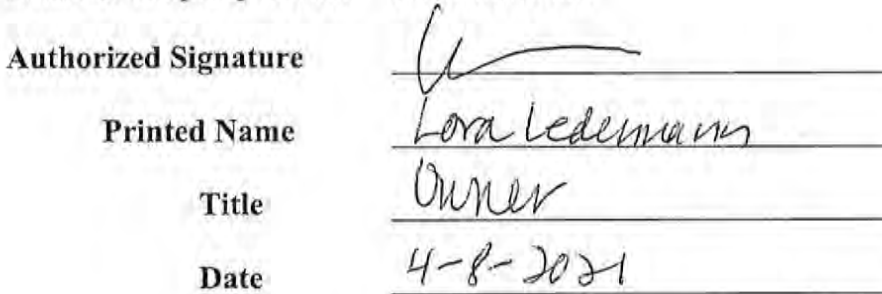 Authorized Signature
Printed Name Lora Ledemann
Title Owner
Date 4-8-2021